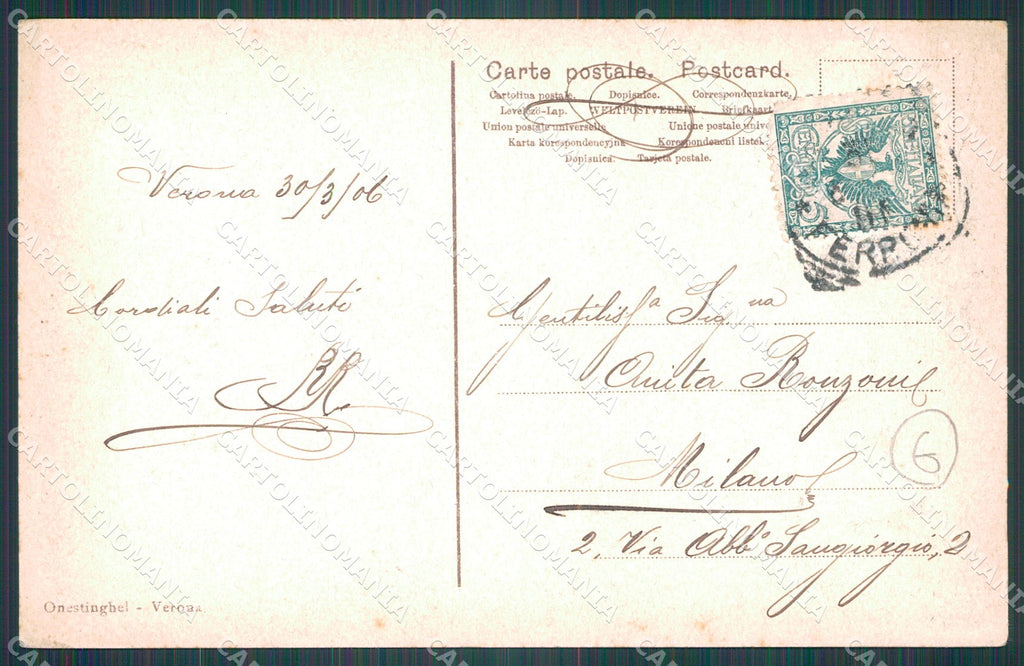 Carte postale. Postcard.
Cartolina postale. Dopisnice. Correspondenzkarte.
Levelező-Lap. WELTPOSTVEREIN Briefkaart
Union postale universelle Unione postale unive
Karta korespondencyjna Korespondencni listek
Dopisnica. Tarjeta postale.
Verona 30/3/06
Cordiali Saluti
RR
Gentiliss.a Sig.na
Anita Ronzoni
Milano
2, Via Abb.o Sangiorgio, 2
G
Onestinghel - Verona.
CARTOLINOMANIA